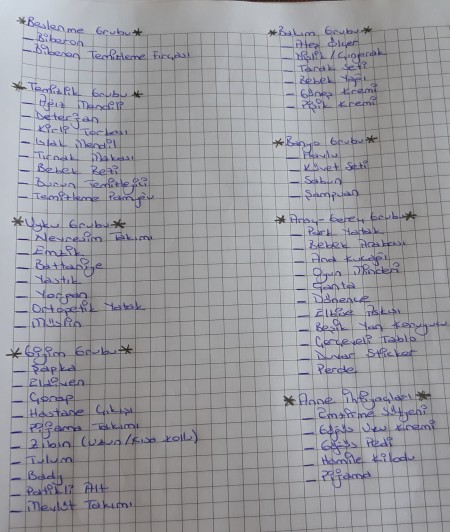 *Beslenme Grubu*
_ Biberon
_ Biberon Temizleme Fırçası
*Temizlik Grubu*
_ Ağız Mendili
_ Deterjan
_ Kirli Torbası
_ Islak Mendil
_ Tırnak Makası
_ Bebek Bezi
_ Burun Temizleyici
_ Temizleme Pamuğu
*Uyku Grubu*
_ Nevresim Takımı
_ Emzik
_ Battaniye
_ Yastık
_ Yorgan
_ Ortopetik Yatak
_ Müslin
*Giyim Grubu*
_ Şapka
_ Eldiven
_ Çorap
_ Hastane Çıkışı
_ Pijama Takımı
_ Zıbın (Uzun/Kısa kollu)
_ Tulum
_ Body
_ Patikli Alt
_ Mevlüt Takımı
*Bakım Grubu*
_ Ateş Ölçer
_ Dişlik / Çıngırak
_ Tarak Seti
_ Bebek Yağı
_ Güneş Kremi
_ Pişik Kremi
*Banyo Grubu*
_ Havlu
_ Küvet Seti
_ Sabun
_ Şampuan
*Araç-Gereç Grubu*
_ Park Yatak
_ Bebek Arabası
_ Ana Kucağı
_ Oyun Minderi
_ Çanta
_ Dönence
_ Elbise Askısı
_ Beşik Yan Koruyucu
_ Çerçeveli Tablo
_ Duvar Sticker
_ Perde
*Anne İhtiyaçları*
_ Emzirme Sütyeni
_ Göğüs Ucu Kremi
_ Göğüs Pedi
_ Hamile Külodu
_ Pijama